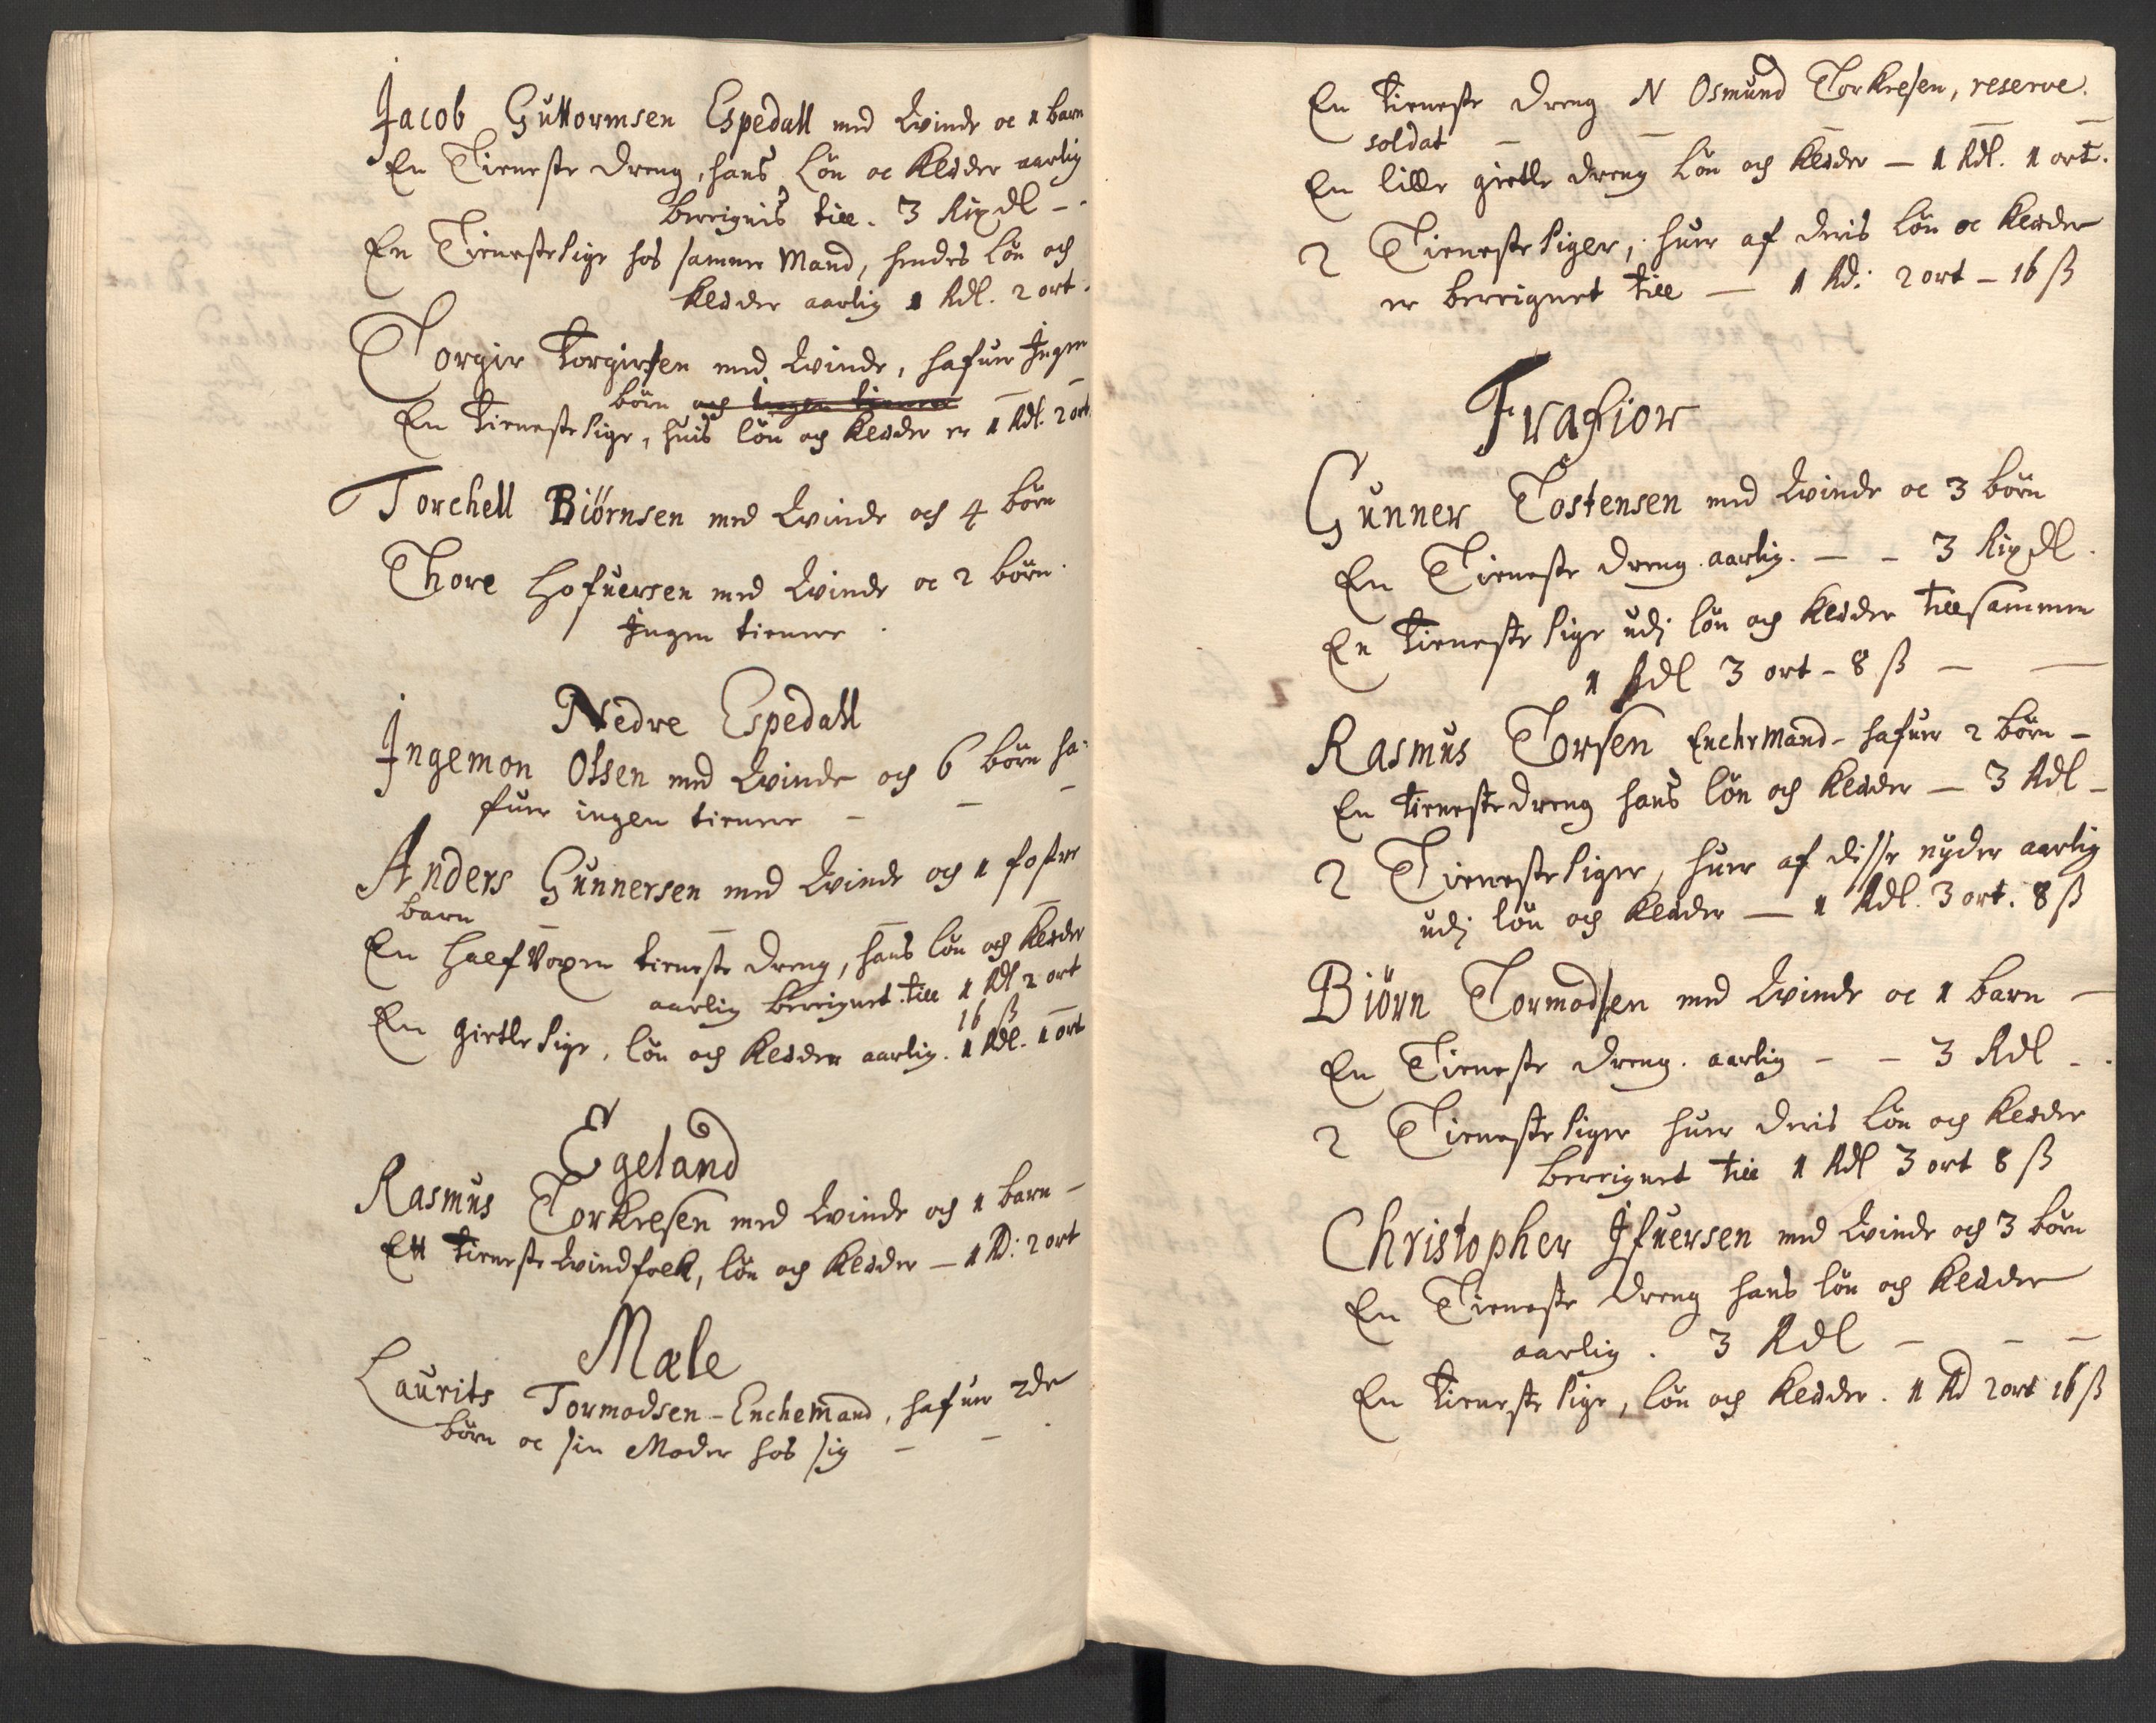 Jacob Guttormsen Espedall med Qvinde oc 1 barn
En Tieneste dreng, hans Løn oc Kleder aarlig
bereignis till. 3 Rixdl - -
En Tieneste Pige hos samme Mand, hendes Løn och
Kleder aarlig 1 Rdl. 2 ort.
Torgir Torgirsen med Qvinde, hafuer Ingen
børn och ingen tienere
En Tieneste Pige, huis løn og Kleder er 1 Rdl. 2 ort.
Torchell Biörnsen med Qvinde och 4 børn
Thore Hofuersen med Qvinde oc 2 børn.
Ingen tienere.
Nedre Espedall
Ingemon Olsen med Qvinde och 6 børn ha-
fuer ingen tienere - - -
Anders Gunnersen med Qvinde och 1 foster
barn - - -
En halfVoxen tieneste dreng, hans løn och Kleder
aarlig bereignet till 1 Rdl 2 ort
16 ß
En girtle Pige, løn och Kleder aarlig. 1 Rdl. 1 ort
Egeland
Rasmus Torkelsen med Qvinde och 1 barn -
Ett tieneste Qvindfolk, løn och Kleder - 1 Rd: 2 ort
Mæle
Laurits Tormodsen - Enchemand, hafuer 2de
børn oc sin Moder hos sig - - .
En tieneste dreng N Osmund Torkelsen, reserve.
soldat - - - - -
En lille girtle dreng Løn och Kleder - 1 Rdl. 1 ort.
2 Tieneste Piger, huer af deris Løn oc Kleder
er bereignet till - 1 Rd: 2 ort - 16 ß
Frafior
Gunner Tostensen med Qvinde oc 3 børn
En Tieneste dreng aarlig. - - 3 Rixdl.
En tieneste Pige udj løn och Kleder tillsammen
1 Rdl 3 ort - 8 ß - -
Rasmus Torsen Enchemand - hafuer 2 børn -
En tienestedreng hans løn och Kleder - 3 Rdl -
2 Tieneste Piger, huer af disse nyder aarlig
udj løn och Kleder - 1 Rdl. 3 ort. 8 ß
Biörn Tormodsen med Qvinde oc 1 barn -
En Tieneste dreng. aarlig - - 3 Rdl - .
2 Tieneste Piger huer deris løn och Kleder
bereignet till 1 Rdl 3 ort 8 ß
Christopher Ifuersen med Qvinde och 3 børn
En Tieneste dreng hans løn och Kleder
aarlig. 3 Rdl - - -
En tieneste Pige, løn och Kleder. 1 Rd 2 ort 16 ß